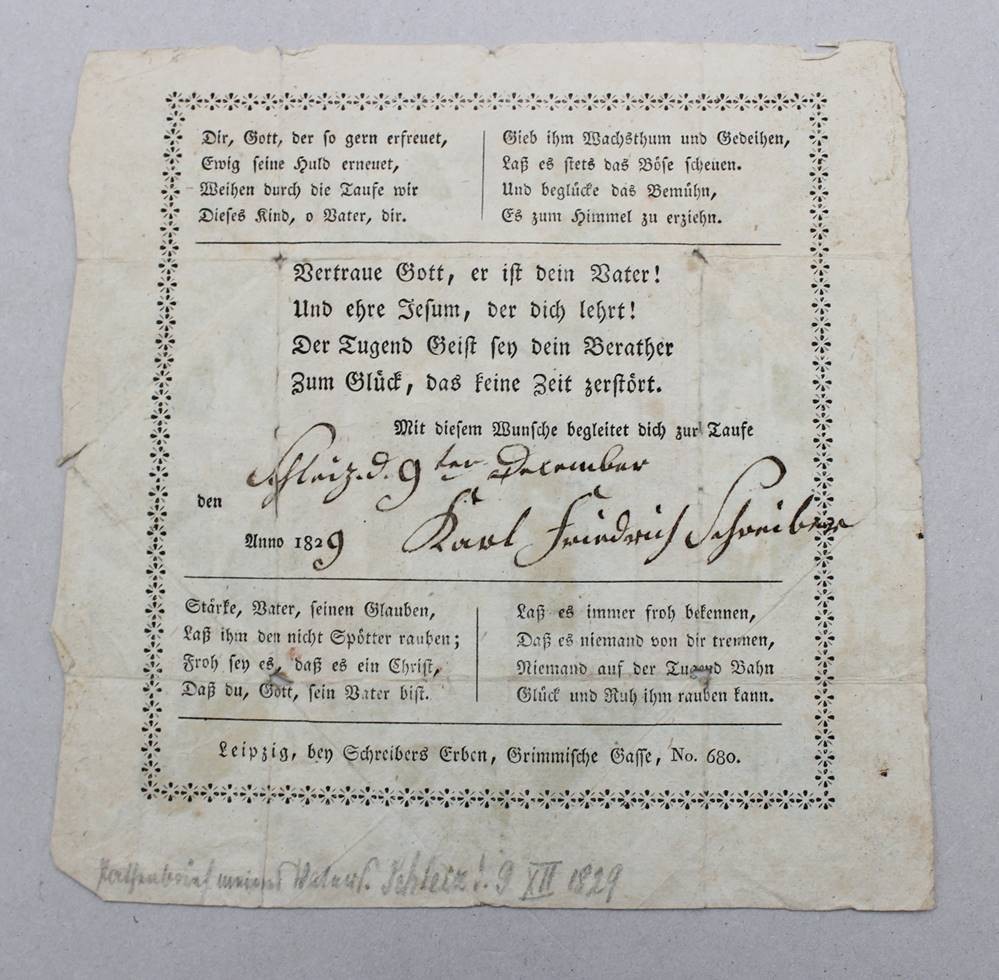 Dir, Gott, der so gern erfreuet,
Ewig seine Huld erneuet,
Weihen durch die Taufe wir
Dieses Kind, o Vater, dir.
Gieb ihm Wachsthum und Gedeihen,
Laß es stets das Böse scheuen.
Und beglücke das Bemühn,
Es zum Himmel zu erziehn.
Vertraue Gott, er ist dein Vater!
Und ehre Jesum, der dich lehrt!
Der Tugend Geist sey dein Berather
Zum Glück, das keine Zeit zerstört.
Mit diesem Wunsche begleitet dich zur Taufe
Schleiz. d. 9ten December
den
Anno 1829 Karl Friedrich Schreiber
Stärke, Vater, seinen Glauben,
Laß ihm den nicht Spötter rauben;
Froh sey es, daß es ein Christ,
Daß du, Gott, sein Vater bist.
Laß es immer froh bekennen,
Daß es niemand von dir trennen,
Niemand auf der Tugend Bahn
Glück und Ruh ihm rauben kann.
Leipzig, bey Schreibers Erben, Grimmische Gasse, No. 680.
Pathenbrief meines Vaters. Schleiz d. 9 XII 1829